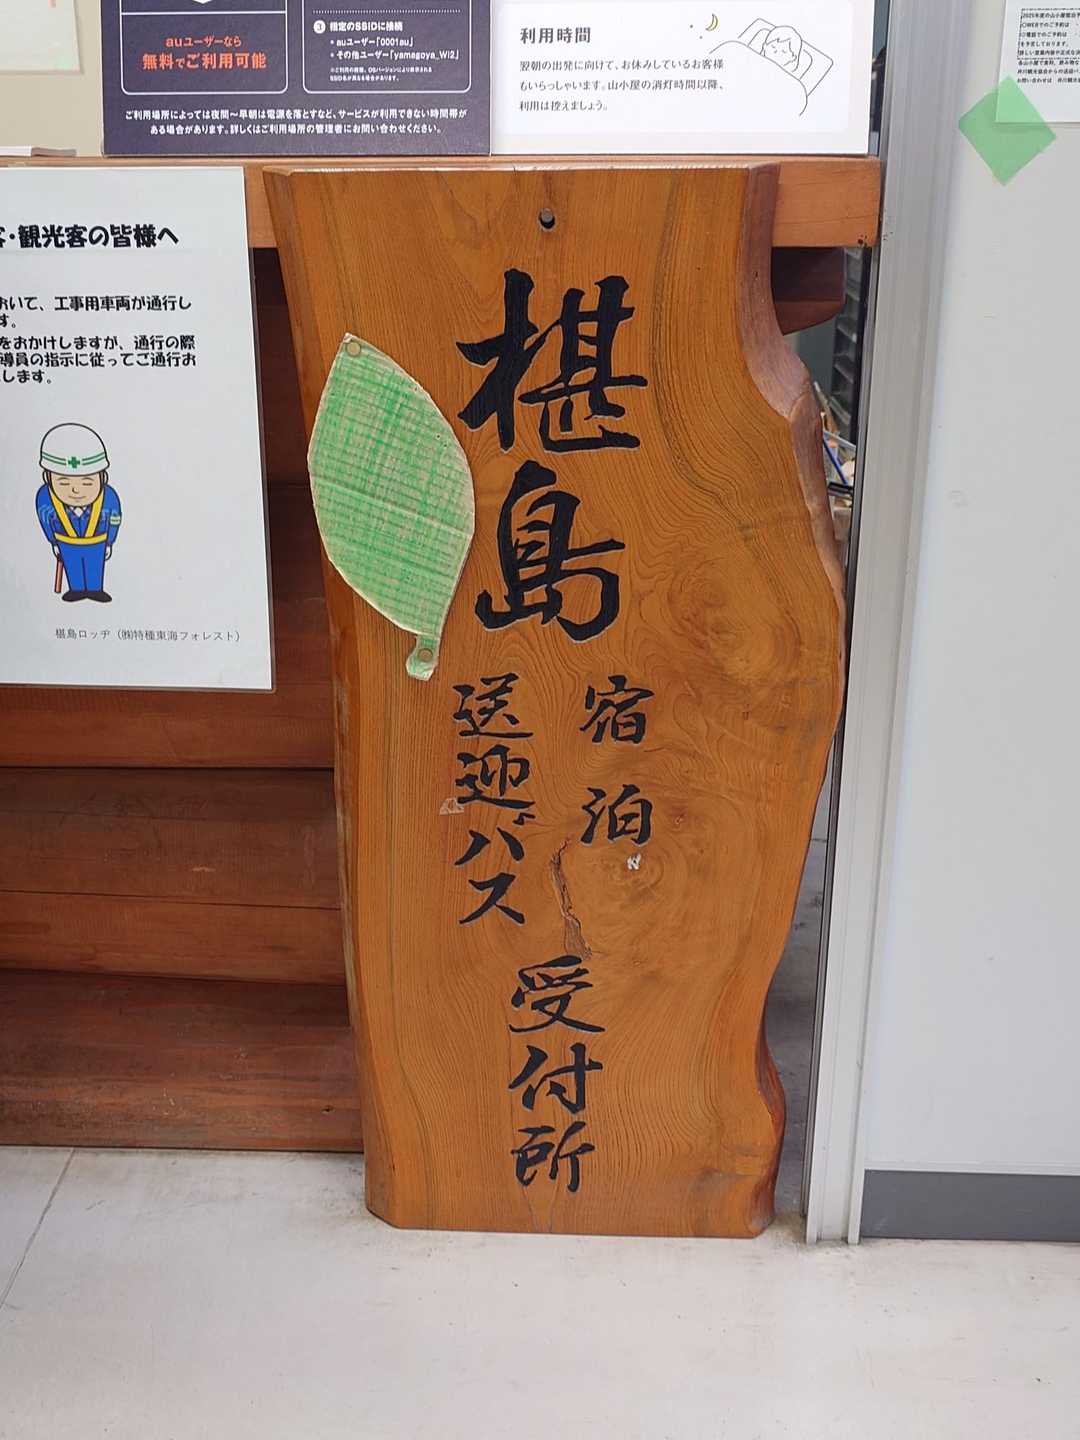 auユーザーなら
無料でご利用可能
③ 指定のSSIDに接続
• auユーザー「0001au」
• その他ユーザー「yamagoya_Wi2」
※ご利用の機種、OSバージョンにより表示される
SSID名が異なる場合があります。
ご利用場所によっては夜間～早朝は電源を落とすなど、サービスが利用できない時間帯が
ある場合があります。詳しくはご利用場所の管理者にお問い合わせください。
利用時間
翌朝の出発に向けて、お休みしているお客様
もいらっしゃいます。山小屋の消灯時間以降、
利用は控えましょう。
客・観光客の皆様へ
おいて、工事用車両が通行し
す。
をおかけしますが、通行の際
導員の指示に従ってご通行お
します。
椹島ロッヂ（㈱特種東海フォレスト）
椹島
宿泊
送迎バス
受付所